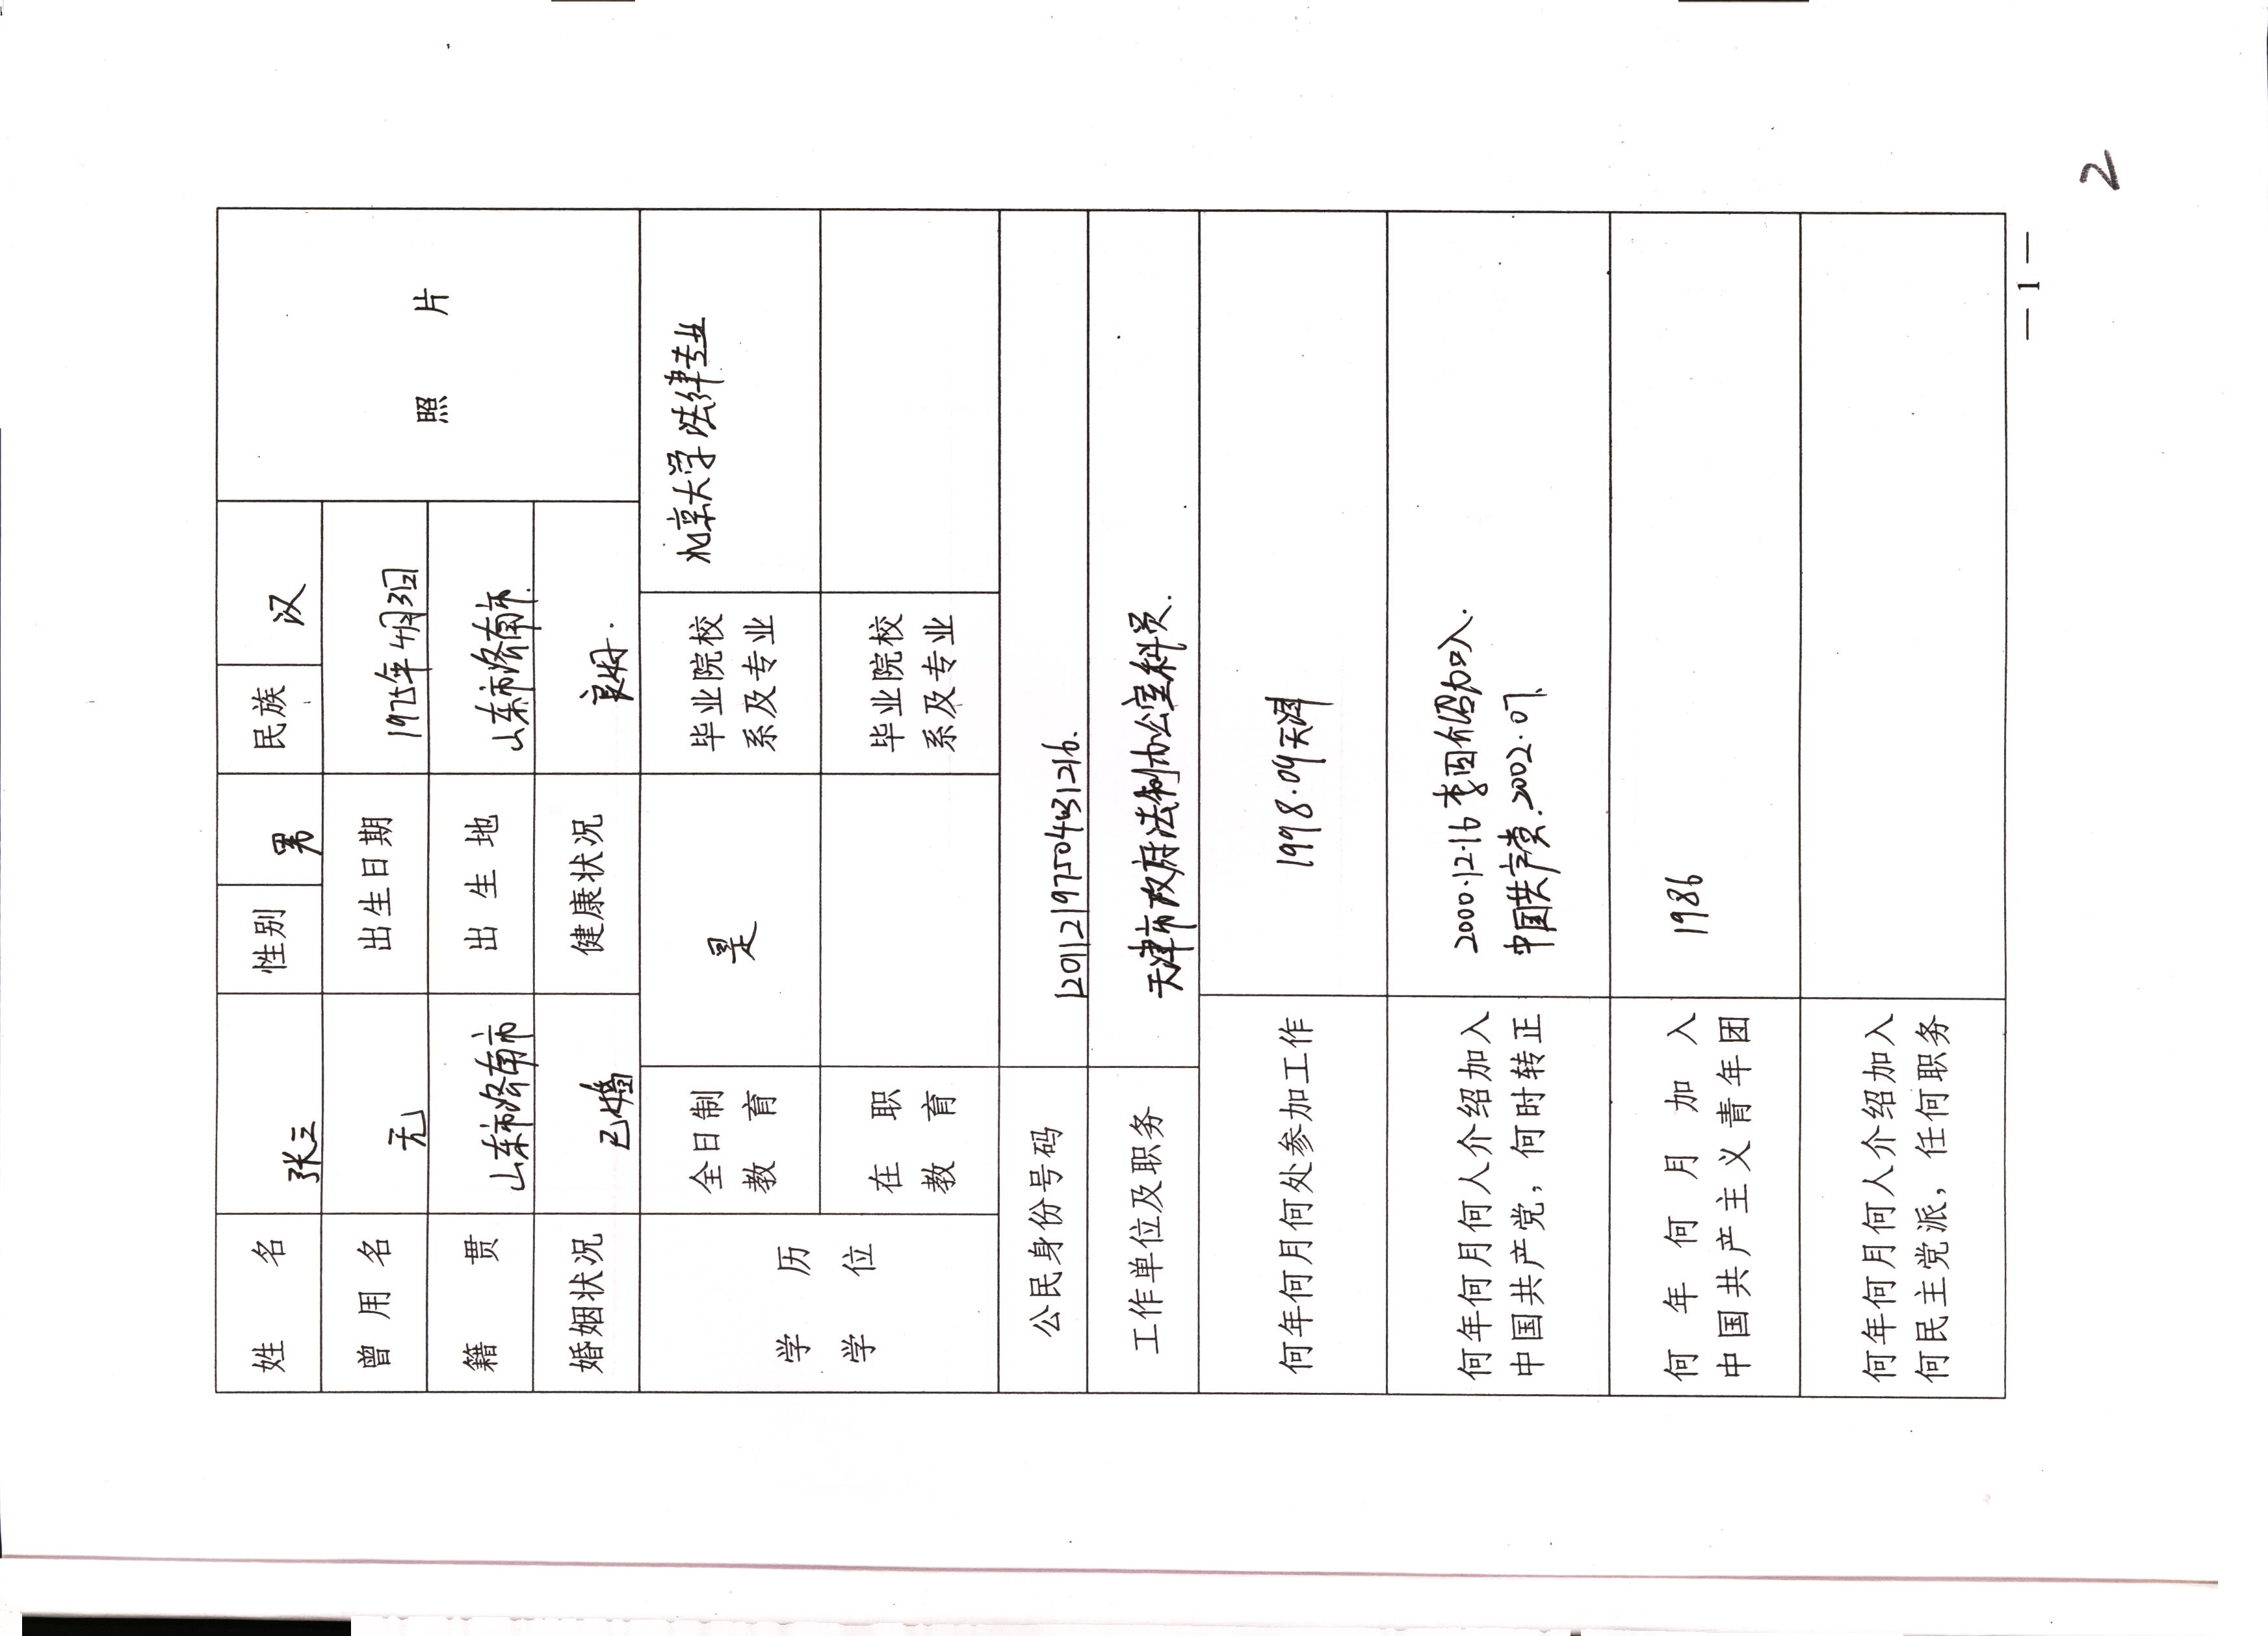 姓 名 张三 性别 男 民族 汉
曾用名 无 出生日期 1975年4月3日
籍 贯 山东市济南市 出生地 山东市济南市.
婚姻状况 已婚 健康状况 良好.
照 片
学 历
学 位
全日制
教 育
是
毕业院校
系及专业
北京大学法律专业
在 职
教 育
毕业院校
系及专业
公民身份号码
工作单位及职务 天津市政府法制办公室科员.
何年何月何处参加工作 1998.09天津
何年何月何人介绍加入
中国共产党，何时转正
2000.12.16李国介绍加入.
中国共产党.2002.07.
何 年 何 月 加 入
中国共产主义青年团
1986
何年何月何人介绍加入
何民主党派，任何职务
— 1 —
2